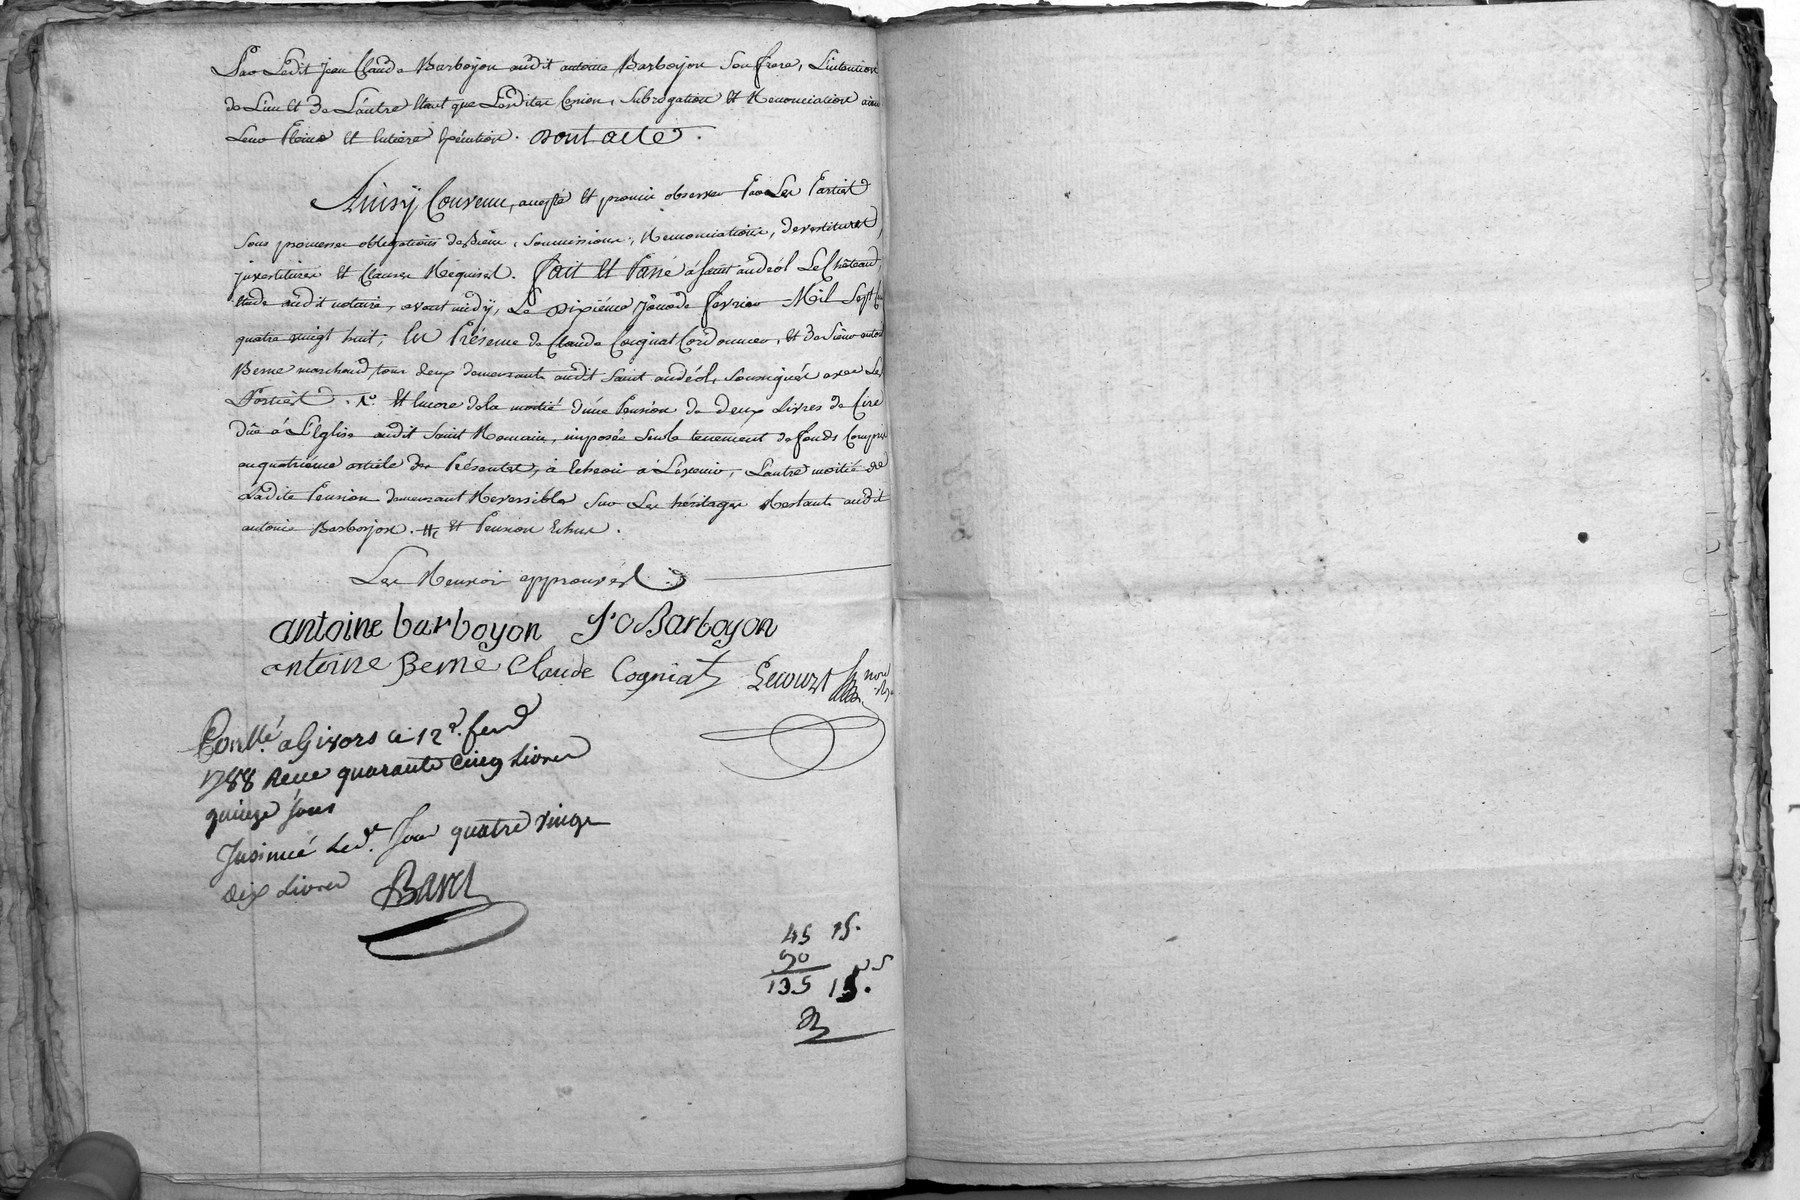 Par Ledit Jean Claude Barboyon audit antoine Barboyon son frere, L'intention
de L'un et de L'autre étant que Lesdites Cession, subrogation et Renonciation aient
Leur pleine et entiere exécution. Dont acte.
Ainsy Convenu, accepté et promis observer Par Les Parties
sous promesses obligations de Biens, soumissions, Renonciations, devestitures,
investitures et Clauses Requises. Fait et Passé à Saint andéol Le Château,
étude dudit notaire, avant midy, Le dixième Jour de fevrier Mil Sept Cent
quatre vingt huit; En Présence de Claude Cogniat Cordonnier, et de sieur antoine
Berne marchand, tous deux demeurants audit Saint andéol, soussignés avec Les
Parties. et encore de la moitié d'une Pension de deux Livres de Cire
dûe à L'Eglise dudit Saint Romain, imposée sur le tenement de fonds Compris
au quatrième article des Présentes, à échoir à L'avenir, L'autre moitié de
Ladite Pension demeurant Reversible sur Les héritages Restants audit
antoine Barboyon. et Pension échue.
Les Renvois approuvés
antoine barboyon J C Barboyon
antoine Berne Claude Cogniat Lecourt
Conllé a Givors ce 12 d. fevr
1788 Reçu quarante cinq Livres
quinze sous
Insinué Led. Jour quatre vingt
dix Livres Bavet
45 15.
90
135 15.